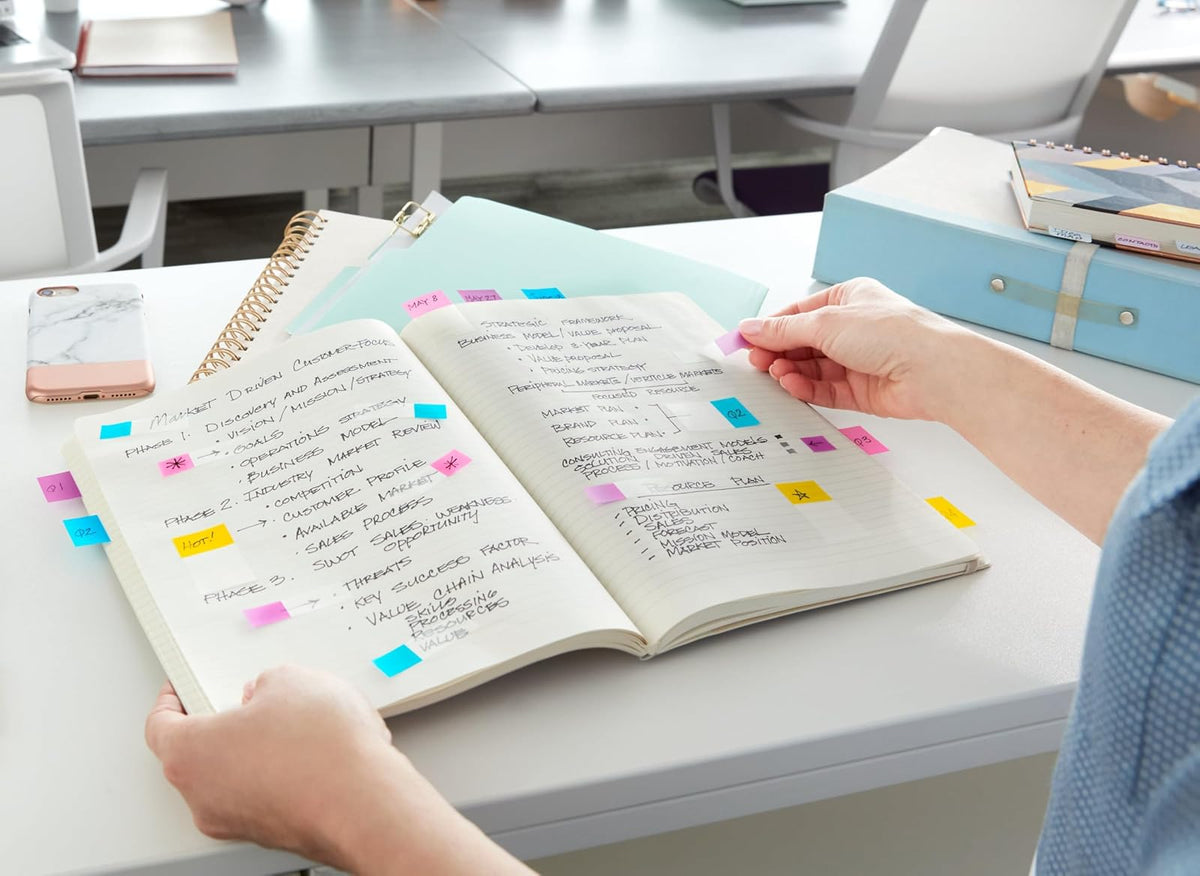 MAY 8
MAY 27
Q1
Q2
MARKET DRIVEN CUSTOMER-FOCUS
PHASE 1: DISCOVERY AND ASSESSMENT
• VISION / MISSION / STRATEGY
* → • GOALS
• OPERATIONS STRATEGY
• BUSINESS MODEL
PHASE 2: INDUSTRY MARKET REVIEW
• COMPETITION *
HOT! → • CUSTOMER PROFILE
• AVAILABLE MARKET
SALES PROCESS
SWOT SALES, WEAKNESS
OPPORTUNITY
PHASE 3. THREATS
→ • KEY SUCCESS FACTOR
• VALUE CHAIN ANALYSIS
SKILLS
PROCESSING
RESOURCES
VALUE
STRATEGIC FRAMEWORK
BUSINESS MODEL / VALUE PROPOSAL
• DEVELOP 3-YEAR PLAN
• VALUE PROPOSAL
• PRICING STRATEGY
PERIPHERAL MARKETS / VERTICLE MARKETS
FOCUSED RESOURCE
MARKET PLAN •
BRAND PLAN •
RESOURCE PLAN •
Q2
CONSULTING ENGAGEMENT MODELS
SOLUTION DRIVEN SALES
PROCESS / MOTIVATION / COACH
←
Q3
RESOURCE PLAN
✓ PRICING
✓ DISTRIBUTION
✓ SALES
✓ FORECAST
✓ MISSION MODEL
✓ MARKET POSITION
CONTACTS